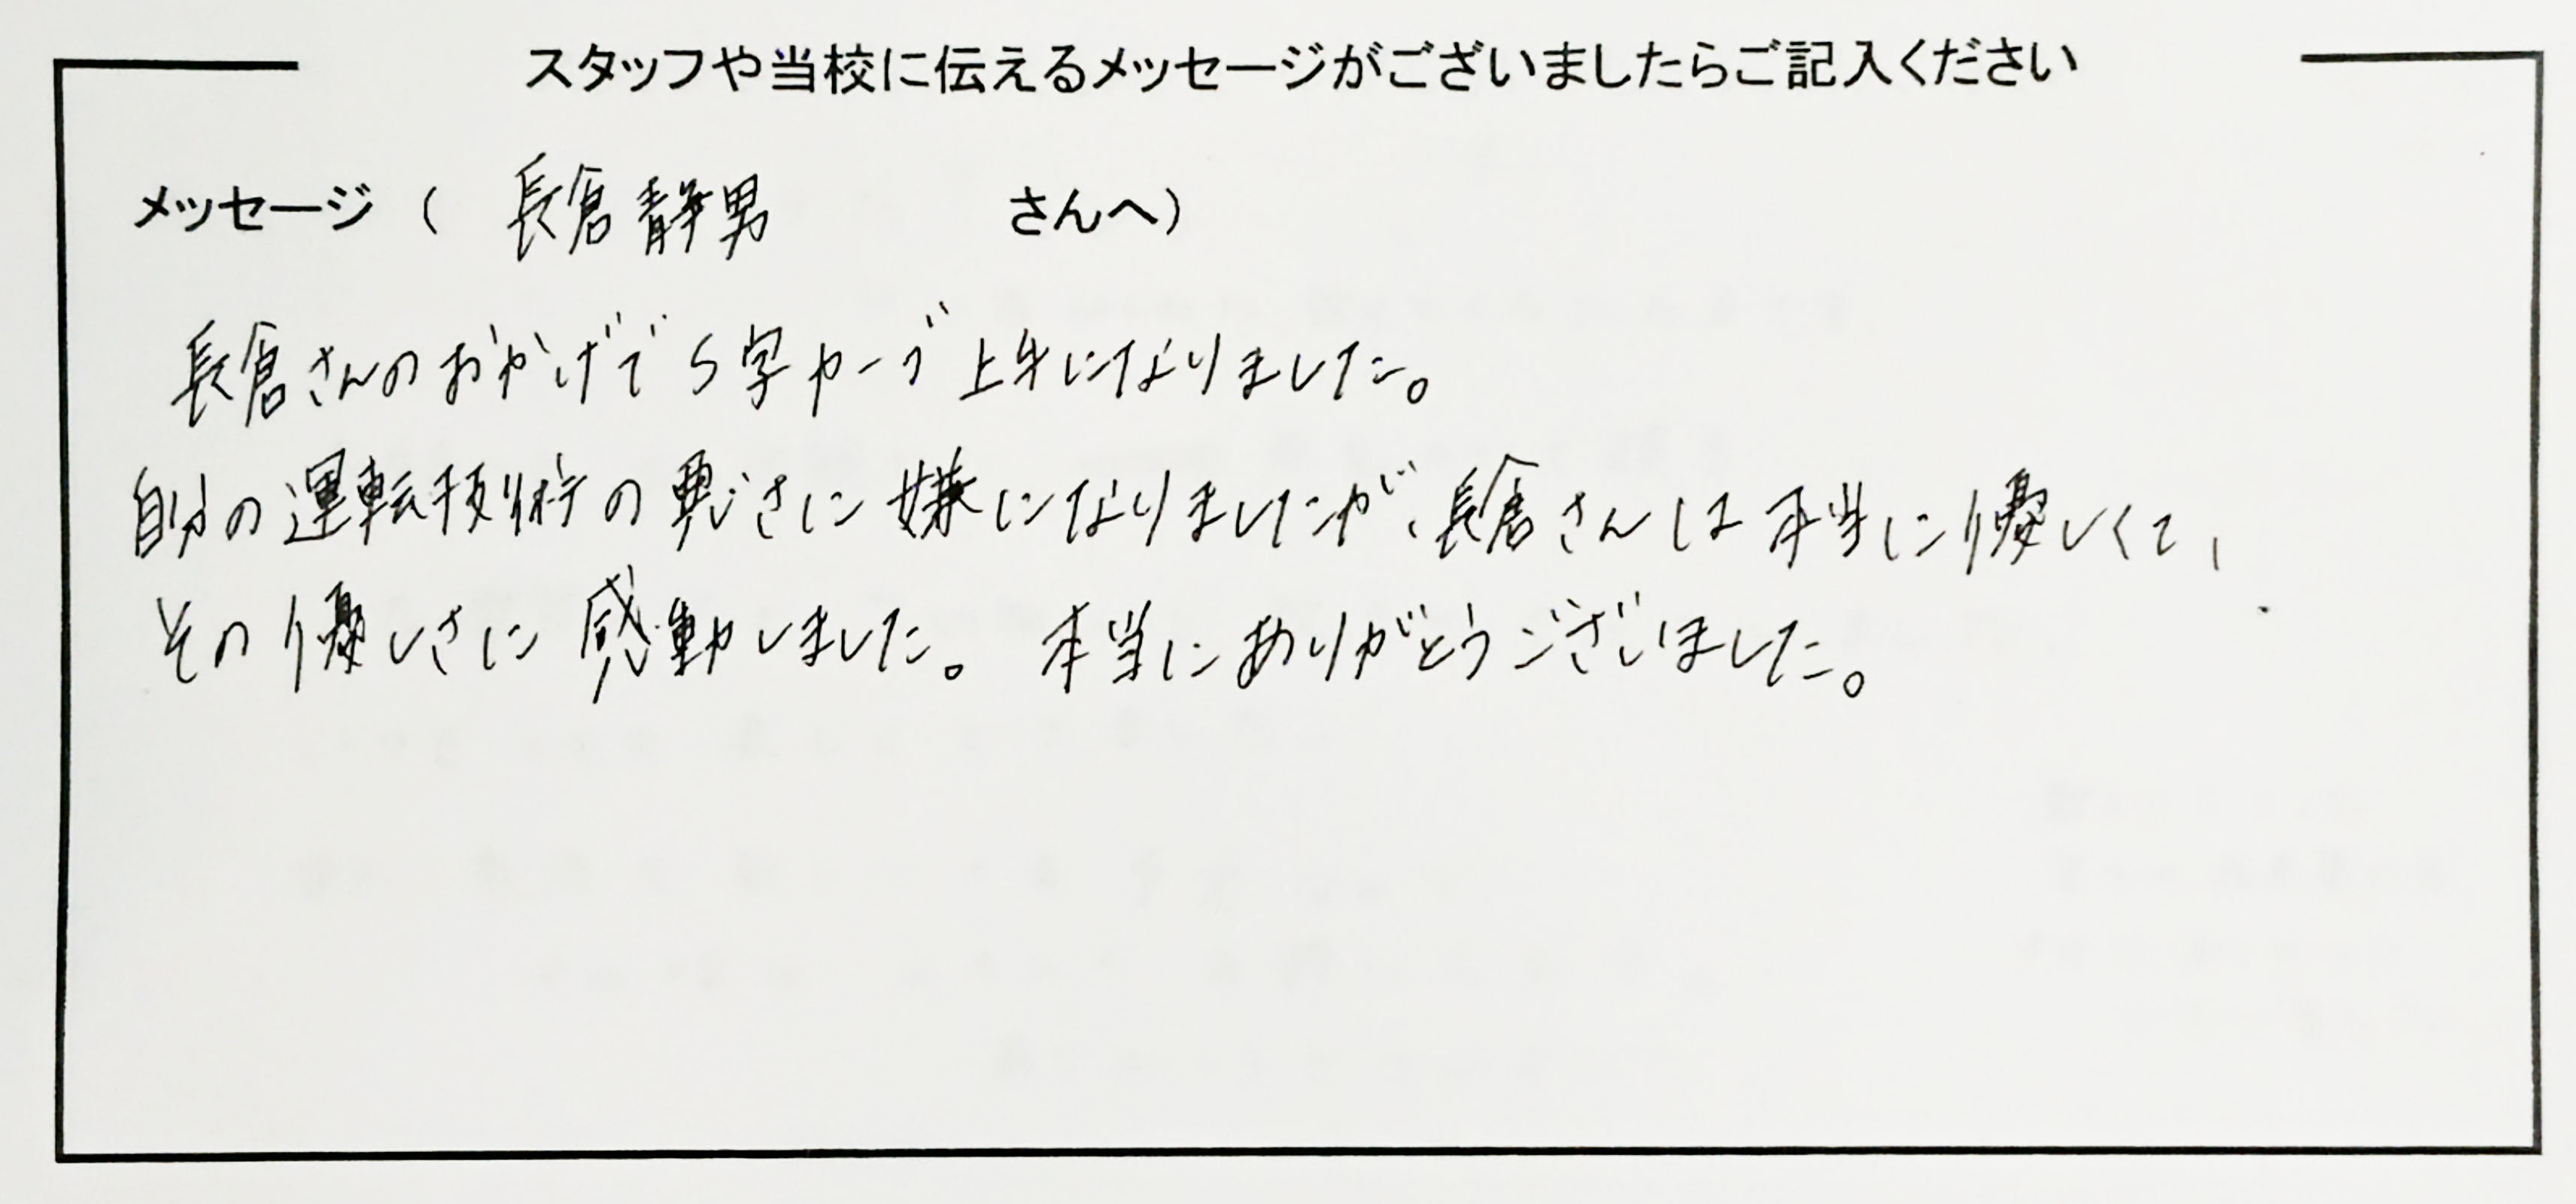 スタッフや当校に伝えるメッセージがございましたらご記入ください
メッセージ ( 長倉静男 さんへ)
長倉さんのおかげでS字カーブ上手になりました。
自分の運転技術の悪さに嫌になりましたが、長倉さんは本当に優しくて、
その優しさに感動しました。本当にありがとうございました。